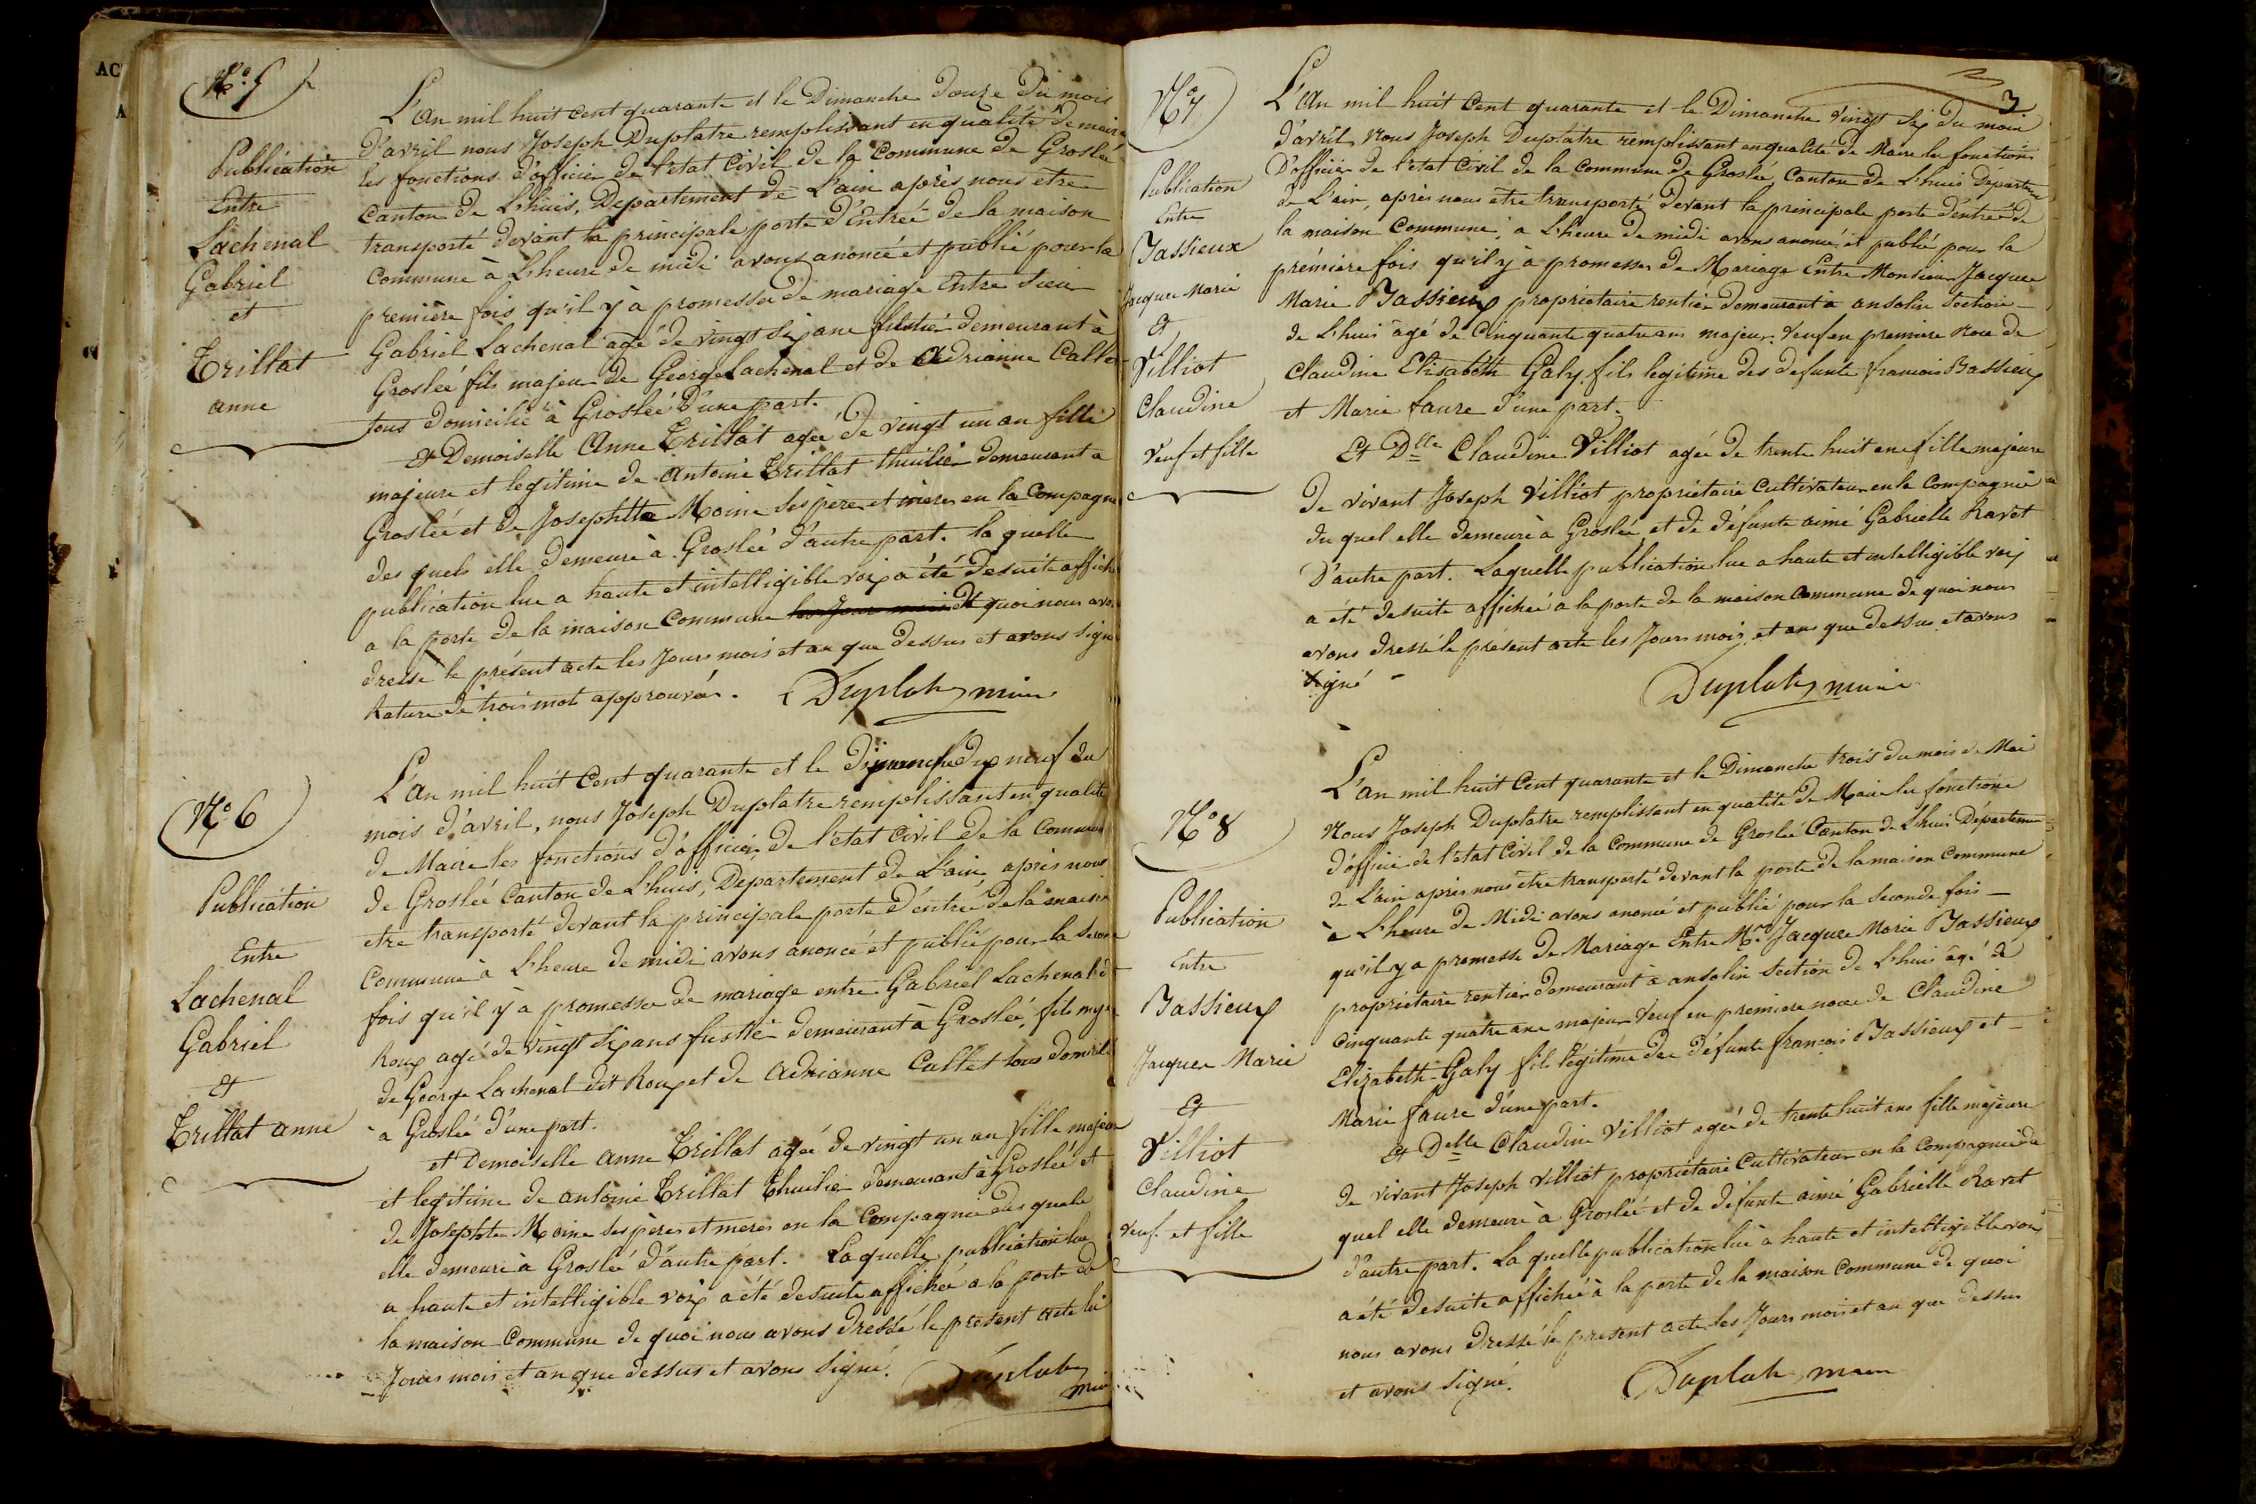 AC
A
N° 5
Publication
Entre
Lachenal
Gabriel
et
Trillat
anne
L'an mil huit cent quarante et le Dimanche douze du mois
d'avril nous Joseph Duplatre remplissant en qualité de maire
les fonctions d'officier de l'état Civil de la Commune de Groslée
Canton de Lhuis, Departement de L'ain après nous etre
transporté devant la principale porte d'Entrée de la maison
Commune à L'heure de midi avons anoncé et publié pour la
première fois qu'il y à promesse de mariage Entre Sieur
Gabriel Lachenal agé de vingt six ans demeurant à
Groslée fils majeur de George Lachenal et de Adrianne Callet
tous domicilié à Groslée d'une part.
Et Demoiselle Anne Trillat agée de vingt un an fille
majeure et legitime de Antoine Trillat thuilier demeurant a
Groslée et de Josephtte Moine ses père et mères en la Compagnie
des quels elle demeure à Groslée d'autre part. la quelle
publication lue a haute et intelligible voix a été desuite affiché
a la porte de la maison Commune de quoi nous avons
dressé le présent acte les Jours mois et an que dessus et avons signé
Rature de trois mots approuvée. Duplatre maire
N° 6
Publication
Entre
Lachenal
Gabriel
et
Trillat anne
L'an mil huit Cent quarante et le Dimanche dix neuf du
mois d'avril, nous Joseph Duplatre remplissant en qualité
de Maire les fonctions d'officier de l'état Civil de la Commune
de Groslée Canton de Lhuis, Departement de L'ain après nous
etre transporté devant la principale porte d'entrée de la maison
Commune à L'heure de midi avons anoncé et publié pour la seconde
fois qu'il y à promesse de mariage entre Gabriel Lachenal dt
Roux agé de vingt six ans demeurant à Groslée, fils majeur
de George Lachenal dit Roux et de Adrianne Callet tous domicilié
à Groslée d'une part.
et Demoiselle anne Trillat agée de vingt un an fille majeur
et legitime de antoine Trillat Thuilier demeurant à Groslée et
de Josephte Moine ses pères et meres en la Compagnie des quels
elle demeure à Groslée d'autre part. La quelle publication lue
a haute et intelligible voix a été desuite affichée a la porte de
la maison Commune de quoi nous avons dressé le présent acte les
Jours mois et an que dessus et avons signé. Duplatre
maire
3
N° 7
Publication
Entre
Bassieux
Jacques Marie
et
Villiot
Claudine
Veuf et fille
L'an mil huit Cent quarante et le Dimanche vingt six du mois
d'avril, nous Joseph Duplatre remplissant en qualité de Maire les fonctions
D'officier de l'état Civil de la Commune de Groslée, Canton de Lhuis Departement
de L'ain, après nous être transporté devant la principale porte d'entrée de
la maison Commune, a L'heure de midi avons anoncé et publié pour la
première fois qu'il y à promesse de Mariage Entre Monsieur Jacques
Marie Bassieux propriétaire rentier demeurant à ansolin section
de Lhuis agé de Cinquante quatre ans majeur. Veuf en premiere noce de
Claudine Elisabeth Galy, fils legitime des defunts francois Bassieux
et Marie faure d'une part.
Et Dlle Claudine Villiot agée de trente huit ans fille majeure
de vivant Joseph Villiot propriétaire Cultivateur en la Compagnie
du quel elle demeure à Groslée, et de défunte aimé Gabrielle Ravet
D'autre part. Laquelle publication lue a haute et intelligible voix
a été desuite affichée a la porte de la maison commune de quoi nous
avons dressé le présent acte les Jours mois et ans que dessus et avons
signé Duplatre maire
N° 8
Publication
Entre
Bassieux
Jacques Marie
Et
Villiot
Claudine
veuf et fille
L'an mil huit Cent quarante et le Dimanche trois du mois de Mai
Nous Joseph Duplatre remplissant en qualité de Maire les fonctions
d'officier de l'état Civil de la Commune de Groslée Canton de Lhuis Départemen
de L'ain après nous être transporté devant la porte de la maison Commune
à L'heure de Midi avons anoncé et publié pour la seconde fois
qu'il y a promesse de Mariage Entre Mr Jacques Marie Bassieux
propriétaire rentier demeurant à ansolin section de Lhuis agé de
Cinquante quatre ans majeur Veuf en premiere noce de Claudine
Elizabeth Galy fils légitime des défunts françois Bassieux et
Marie faure d'une part.
Et Delle Claudine Villiot agée de trente huit ans fille majeure
de vivant Joseph Villiot propriétaire Cultivateur en la Compagnie du
quel elle demeure à Groslée et de défunte aimé Gabrielle Ravet
d'autre part. La quelle publication lue à haute et intelligible voix
a été desuite affichée à la porte de la maison Commune de quoi
nous avons dressé le présent acte les Jours mois et an que dessus
et avons signé. Duplatre maire